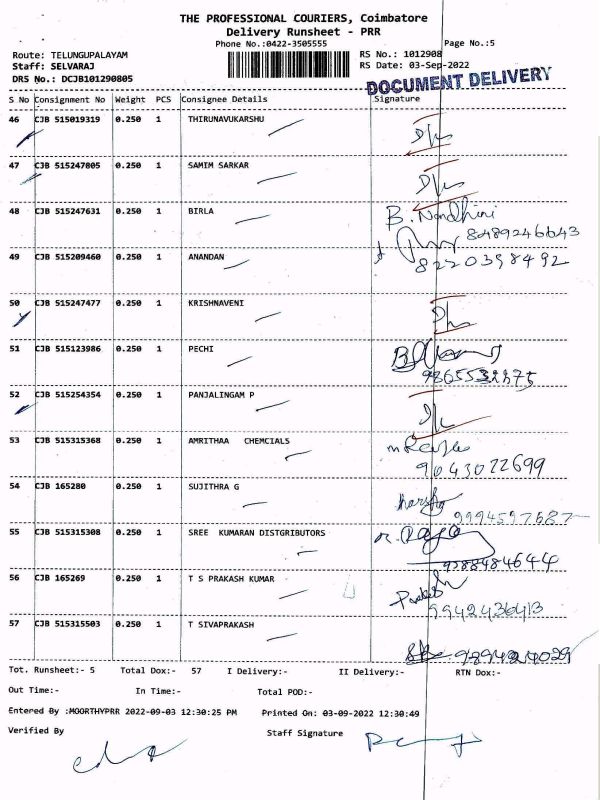 THE PROFESSIONAL COURIERS, Coimbatore
Delivery Runsheet - PRR
Phone No.:0422-3505555
Page No.:5
Route: TELUNGUPALAYAM
RS No.: 1012908
Staff: SELVARAJ
RS Date: 03-Sep-2022
DRS No.: DCJB101290805
DOCUMENT DELIVERY
S No Consignment No Weight PCS Consignee Details Signature
46 CJB 515019319 0.250 1 THIRUNAVUKARSHU
47 CJB 515247805 0.250 1 SAMIM SARKAR
48 CJB 515247631 0.250 1 BIRLA B. Nandhini
8489246643
49 CJB 515209460 0.250 1 ANANDAN
8220398492
50 CJB 515247477 0.250 1 KRISHNAVENI
51 CJB 515123986 0.250 1 PECHI
52 CJB 515254354 0.250 1 PANJALINGAM P
53 CJB 515315368 0.250 1 AMRITHAA CHEMCIALS
9043022699
54 CJB 165280 0.250 1 SUJITHRA G
9994597687
55 CJB 515315308 0.250 1 SREE KUMARAN DISTGRIBUTORS
9788484644
56 CJB 165269 0.250 1 T S PRAKASH KUMAR Prakash
9942436413
57 CJB 515315503 0.250 1 T SIVAPRAKASH
Tot. Runsheet:- 5 Total Dox:- 57 I Delivery:- II Delivery:- RTN Dox:-
Out Time:- In Time:- Total POD:-
Entered By :MOORTHYPRR 2022-09-03 12:30:25 PM Printed On: 03-09-2022 12:30:49
Verified By Staff Signature